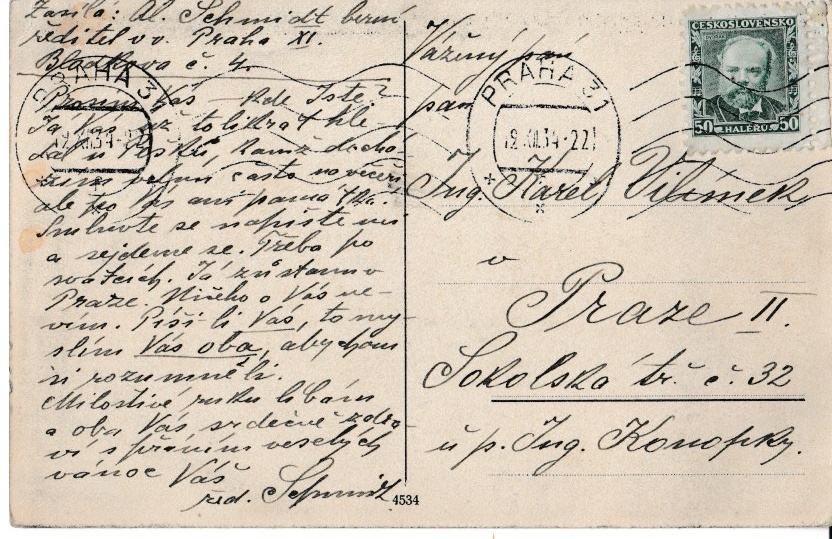 Zasílá: Al. Schmidt berní
ředitel v v. Praha XI.
Bladkova č. 4.
Prosím Vás – kde Jste?
Já Vás už tolikrát hle-
dal u Pešků, kamž dochá-
zím velmi často na večeři
ale po Vás ani památka.
Smluvte se napište mi
a sejdeme se. Třeba po
svátcích. Já zůstanu v
Praze. Ničeho o Vás ne-
vím. Píši-li Vás, to my-
slím Vás oba, abychom
si rozuměli.
Milostivé ruku líbám
a oba Vás srdečně zdra-
ví s přáním veselých
vánoc Váš
řed. Schmidt
4534
Vážený pán
pan
Ing. Karel Vilímek
v
Praze II.
Sokolská tř. č. 32
u p. Ing. Konopky.
PRAHA 31
19.XII.34-22
PRAHA 31
19.XII.34-22
ČESKOSLOVENSKO
50 HALÉŘŮ 50